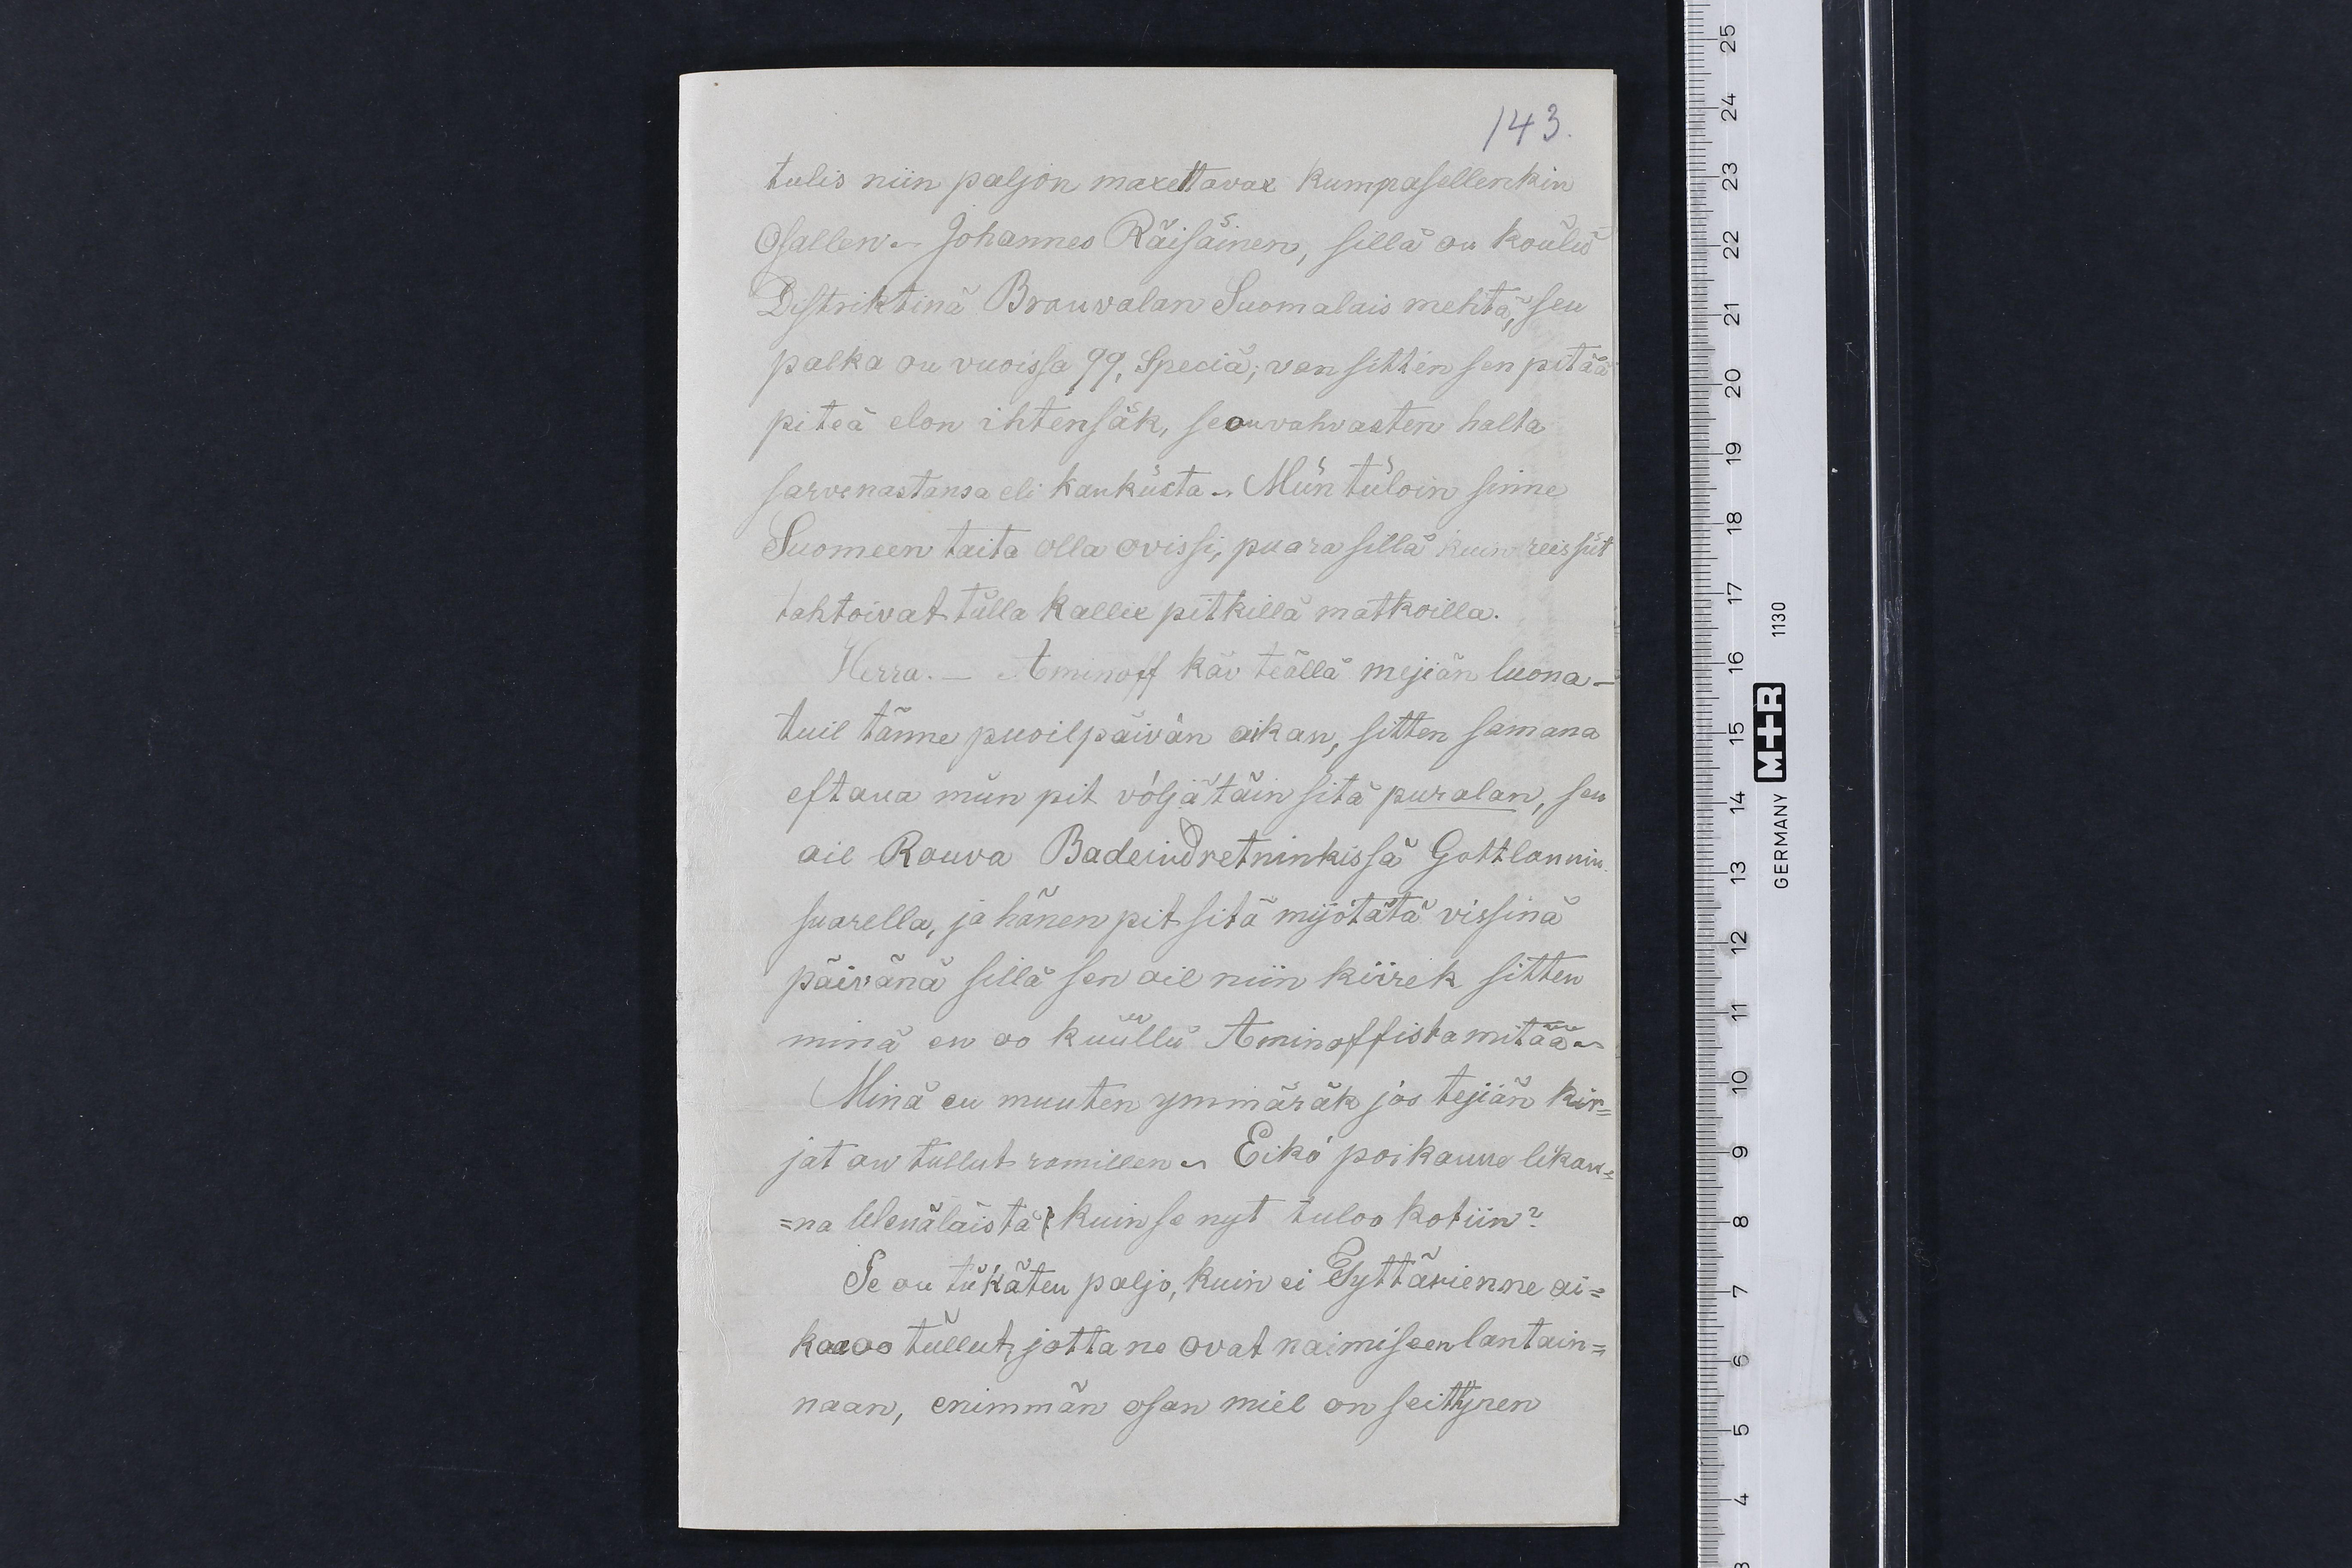 143.
tulis niin paljon maxettavax kumpasellenkin
Osallen. Johannes Räisäinen, sillä on koulu
Distriktinä Brouvalan Suomalais mehtä, sen
palka on vuoissa 99, Speciä; van sitten sen pitää
piteä elon ihtensäk, se on vahvasten halta
sarvenastansa eli kaukusta. Mün tuloin sinne
Suomeen taita olla ovissi, puara sillä kuin reissut
tahtoivat tulla kallix pitkillä matkoilla.
Herra. — Aminoff käv teällä mejiän luona —
tuil tänne puoilpäivän aikan, sitten samana
eftana mün pit völjätäin sitä puralan, sen
ail Rouva Badeindretninkissä Gottlannin
suarella, ja hänen pit sitä myjötätä vissinä
päivänä sillä sen ail niin kiirek sitten
minä en oo kuullu Aminoffista mitää
Minä en muuten ymmäräk jos tejiän kir=
jat on tullut romillen. Eikö poikanne likan=
=na Wenäläistä kuin se nyt tuloo kotiin?
Se on tükäten paljo, kuin ei Tyttärienne ai=
kaa oo tullut, jotta ne ovat naimiseen lantain=
naan, enimmän osan miel on seittynen
GERMANY M+R 1130
25 24 23 22 21 20 19 18 17 16 15 14 13 12 11 10 9 8 7 6 5 4